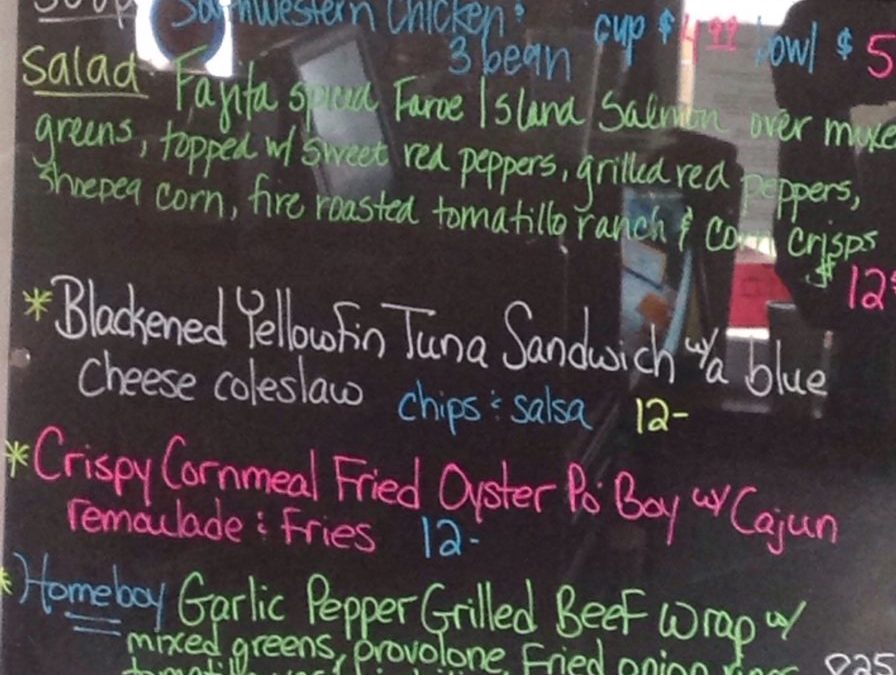 Soup Southwestern Chicken &
3 bean cup $4.99 bowl $5
Salad Fajita spiced Faroe Island Salmon over mixe
greens, topped w/ sweet red peppers, grilled red peppers,
Shoepeg corn, fire roasted tomatillo ranch & corn crisps
$12
*Blackened Yellowfin Tuna Sandwich w/a blue
cheese coleslaw chips & salsa 12-
*Crispy Cornmeal Fried Oyster Po' Boy w/ Cajun
remoulade & Fries 12-
*Homeboy Garlic Pepper Grilled Beef Wrap w/
mixed greens, provolone, Fried onion rings 825